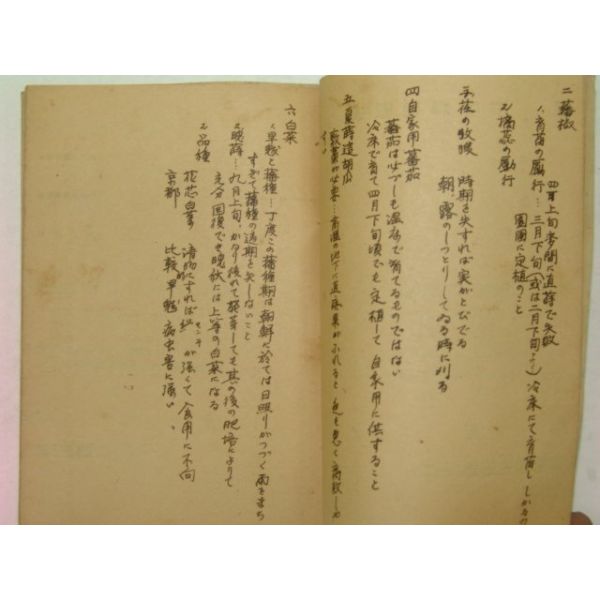 二 蕃椒
四月上旬本圃に直蒔で失敗
1. 育苗の励行…三月下旬(或は二月下旬より)冷床にて育苗し
園圃に定植のこと
2. 摘蕊の励行
3. 荏の收穫 時期を失すれば実がとびでる
朝、露のしっとりしてゐる時に刈る
四 自家用蕃茄
蕃茄は必ずしも温床で育てるものではない
冷床で育て四月下旬頃でも定植して自家用に供すること
五 夏蒔這胡瓜
敷藁が必要…
六 白菜
1. 早魃と蕃種…丁度この蕃種期は朝鮮に於ては日照りがつづく雨をまち
すぎて蕃種の適期を失しないこと
2. 晩蒔…九月上旬、かなり後れて発芽しても其の後の肥培によりて
充分回復でき晩秋には上等の白菜になる
3. 品種
花芯白菜 漬物にすれば センイ が強くて食用に不向
京都 比較的早魃病虫害に強い、